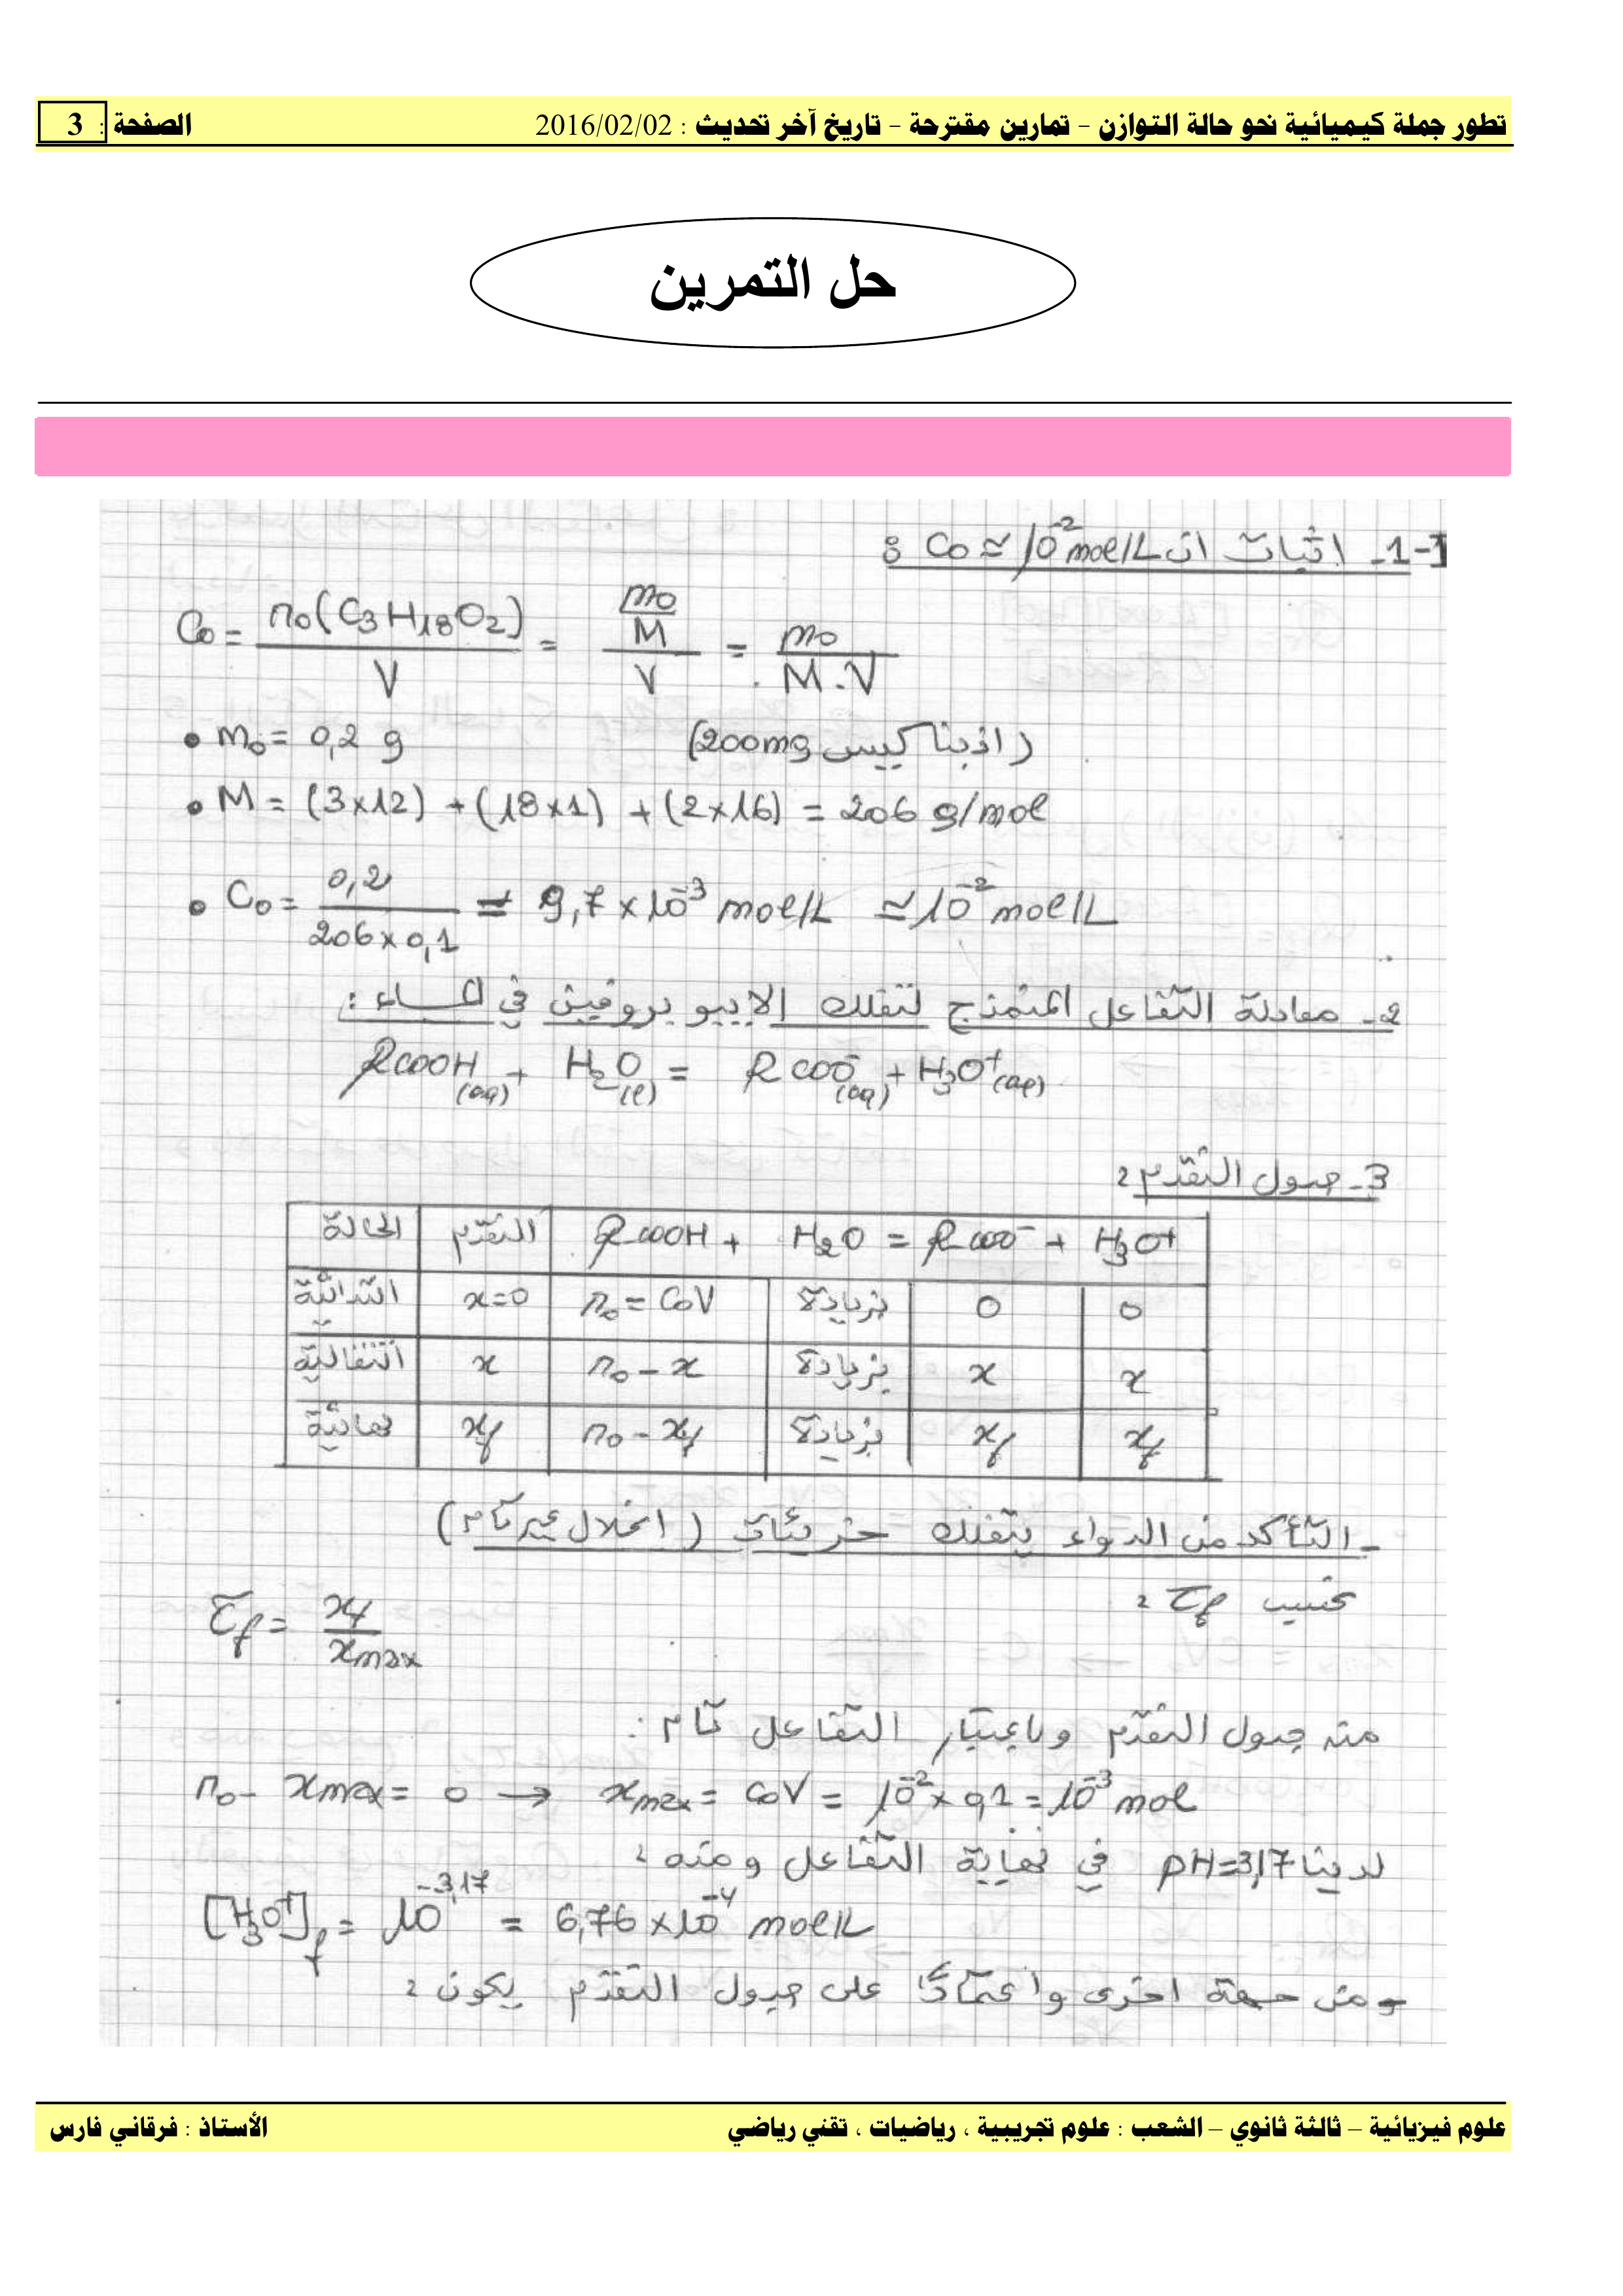 تطور جملة كيميائية نحو حالة التوازن – تمارين مقترحة – تاريخ آخر تحديث : 2016/02/02 الصفحة : 3
حل التمرين
I-1- اثبات ان C₀ ≈ 10⁻² mol/L :
C₀ = n₀(C₃H₁₈O₂)/V = (m₀/M)/V = m₀/(M.V)
• m₀ = 0,2 g (اذبنا كيس 200mg)
• M = (3×12) + (18×1) + (2×16) = 206 g/mol
• C₀ = 0,2/(206×0,1) = 9,7×10⁻³ mol/L ≈ 10⁻² mol/L
2- معادلة التفاعل المنمذج لتفكك الإيبوبروفين في الماء :
RCOOH(aq) + H₂O(l) = RCOO⁻(aq) + H₃O⁺(aq)
3- جدول التقدم :
الحالة التقدّم RCOOH + H₂O = RCOO⁻ + H₃O⁺
ابتدائية x=0 n₀ = C₀V بزيادة 0 0
انتقالية x n₀ – x بزيادة x x
نهائية xf n₀ – xf بزيادة xf xf
- التأكد من الدواء يتفكك جزئيات (انحلال غير تام)
نحسب τf :
τf = xf/xmax
منه جدول التقدّم وباعتبار التفاعل تام :
n₀ – xmax = 0 → xmax = C₀V = 10⁻² × 0,1 = 10⁻³ mol
لدينا pH=3,17 في نهاية التفاعل ومنه :
[H₃O⁺]f = 10⁻³,¹⁷ = 6,76×10⁻⁴ mol/L
- ومن جهة اخرى واعتمادًا على جدول التقدّم يكون :
علوم فيزيائية – ثالثة ثانوي – الشعب : علوم تجريبية ، رياضيات ، تقني رياضي الأستاذ : فرقاني فارس